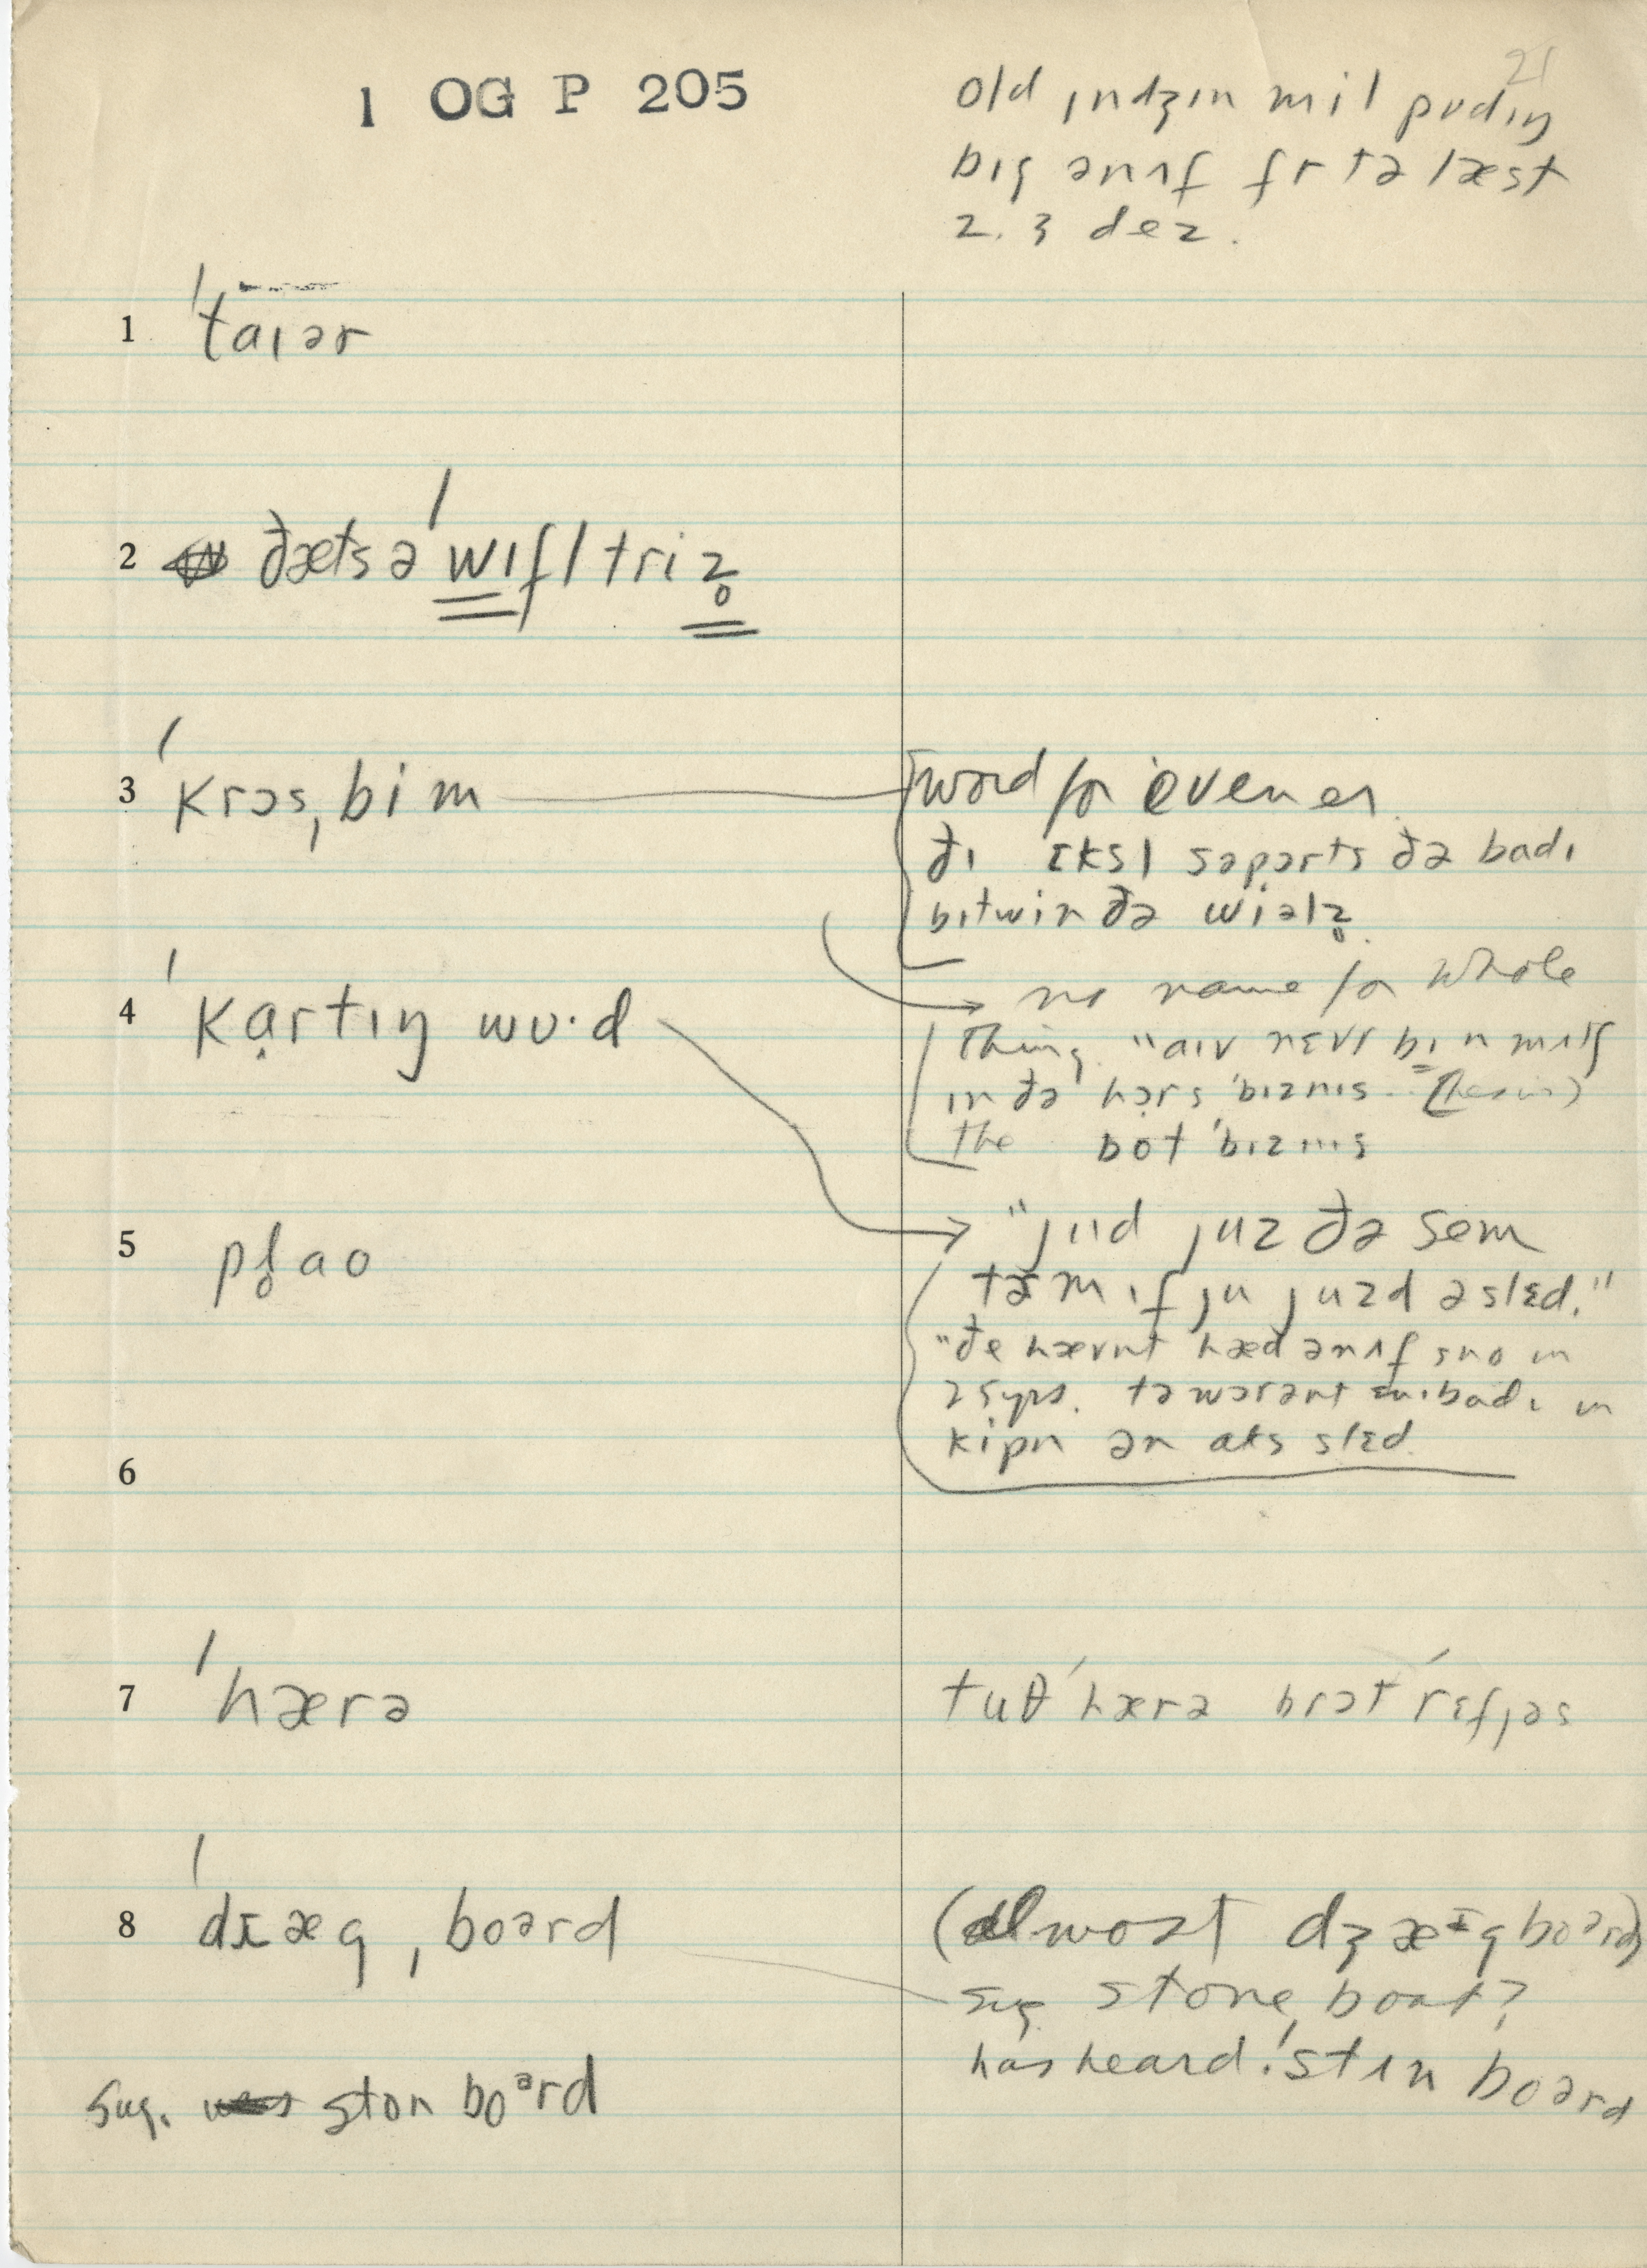 1 OG P 205
21
old ɪndʒɪn mil pʊdɪŋ
bɪg ənʌf fr tə læst
2. 3 dez.
1 ˈtaɪər
2 ðæts ə ˈwɪfl triz̥
3 ˈkrɔsˌbim
word for evener
ðɪ ɛksl səpɔrts ðə badɪ
bɪtwin ðə wiəlz̥
no name for whole
4 ˈkɑ̣rtɪŋ wʊ·d
thing. "aɪv nɛvr bɪn mʌtʃ
ɪn ðə hɔrs ˈbɪznɪs
the bot ˈbɪznɪs
5 pl̥ao
"jiɪd juz ðə sem
tɚm ɪf ju juzd ə slɛd."
"ðe hævnt hæd ənʌf sno in
25 yrs. tə wɔrənt ɛnibadɪ in
kipn ən aks slɛd
6
7 ˈhærə
tuθ ˈhærə brɔt ˈrɛfjəs
8 ˈdɹæg ˌboərd
(almost dʒæɪgboərd)
sug. stone boat?
has heard ˈstɪn boərd
sug. ston boᵊrd